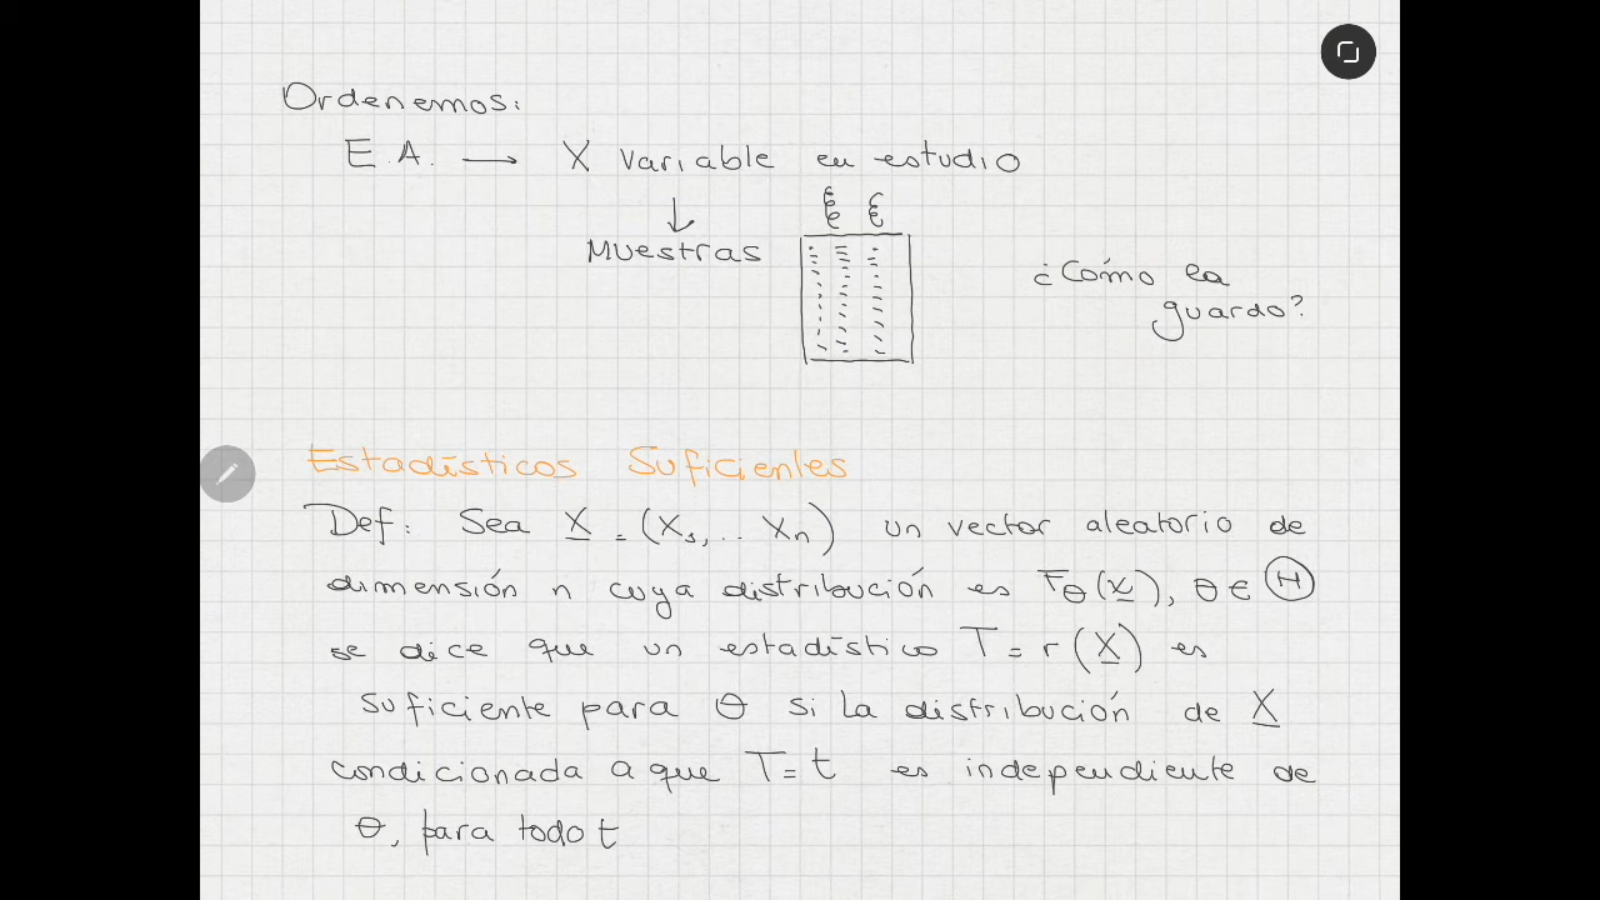 Ordenemos:
E.A. → X variable en estudio
↓
Muestras
¿Cómo la
guardo?
Estadísticos Suficientes
Def: Sea X = (X₁,.. Xn) un vector aleatorio de
dimensión n cuya distribución es Fθ(x), θ ∈ Θ
se dice que un estadístico T = r(X) es
suficiente para θ si la distribución de X
condicionada a que T = t es independiente de
θ, para todo t